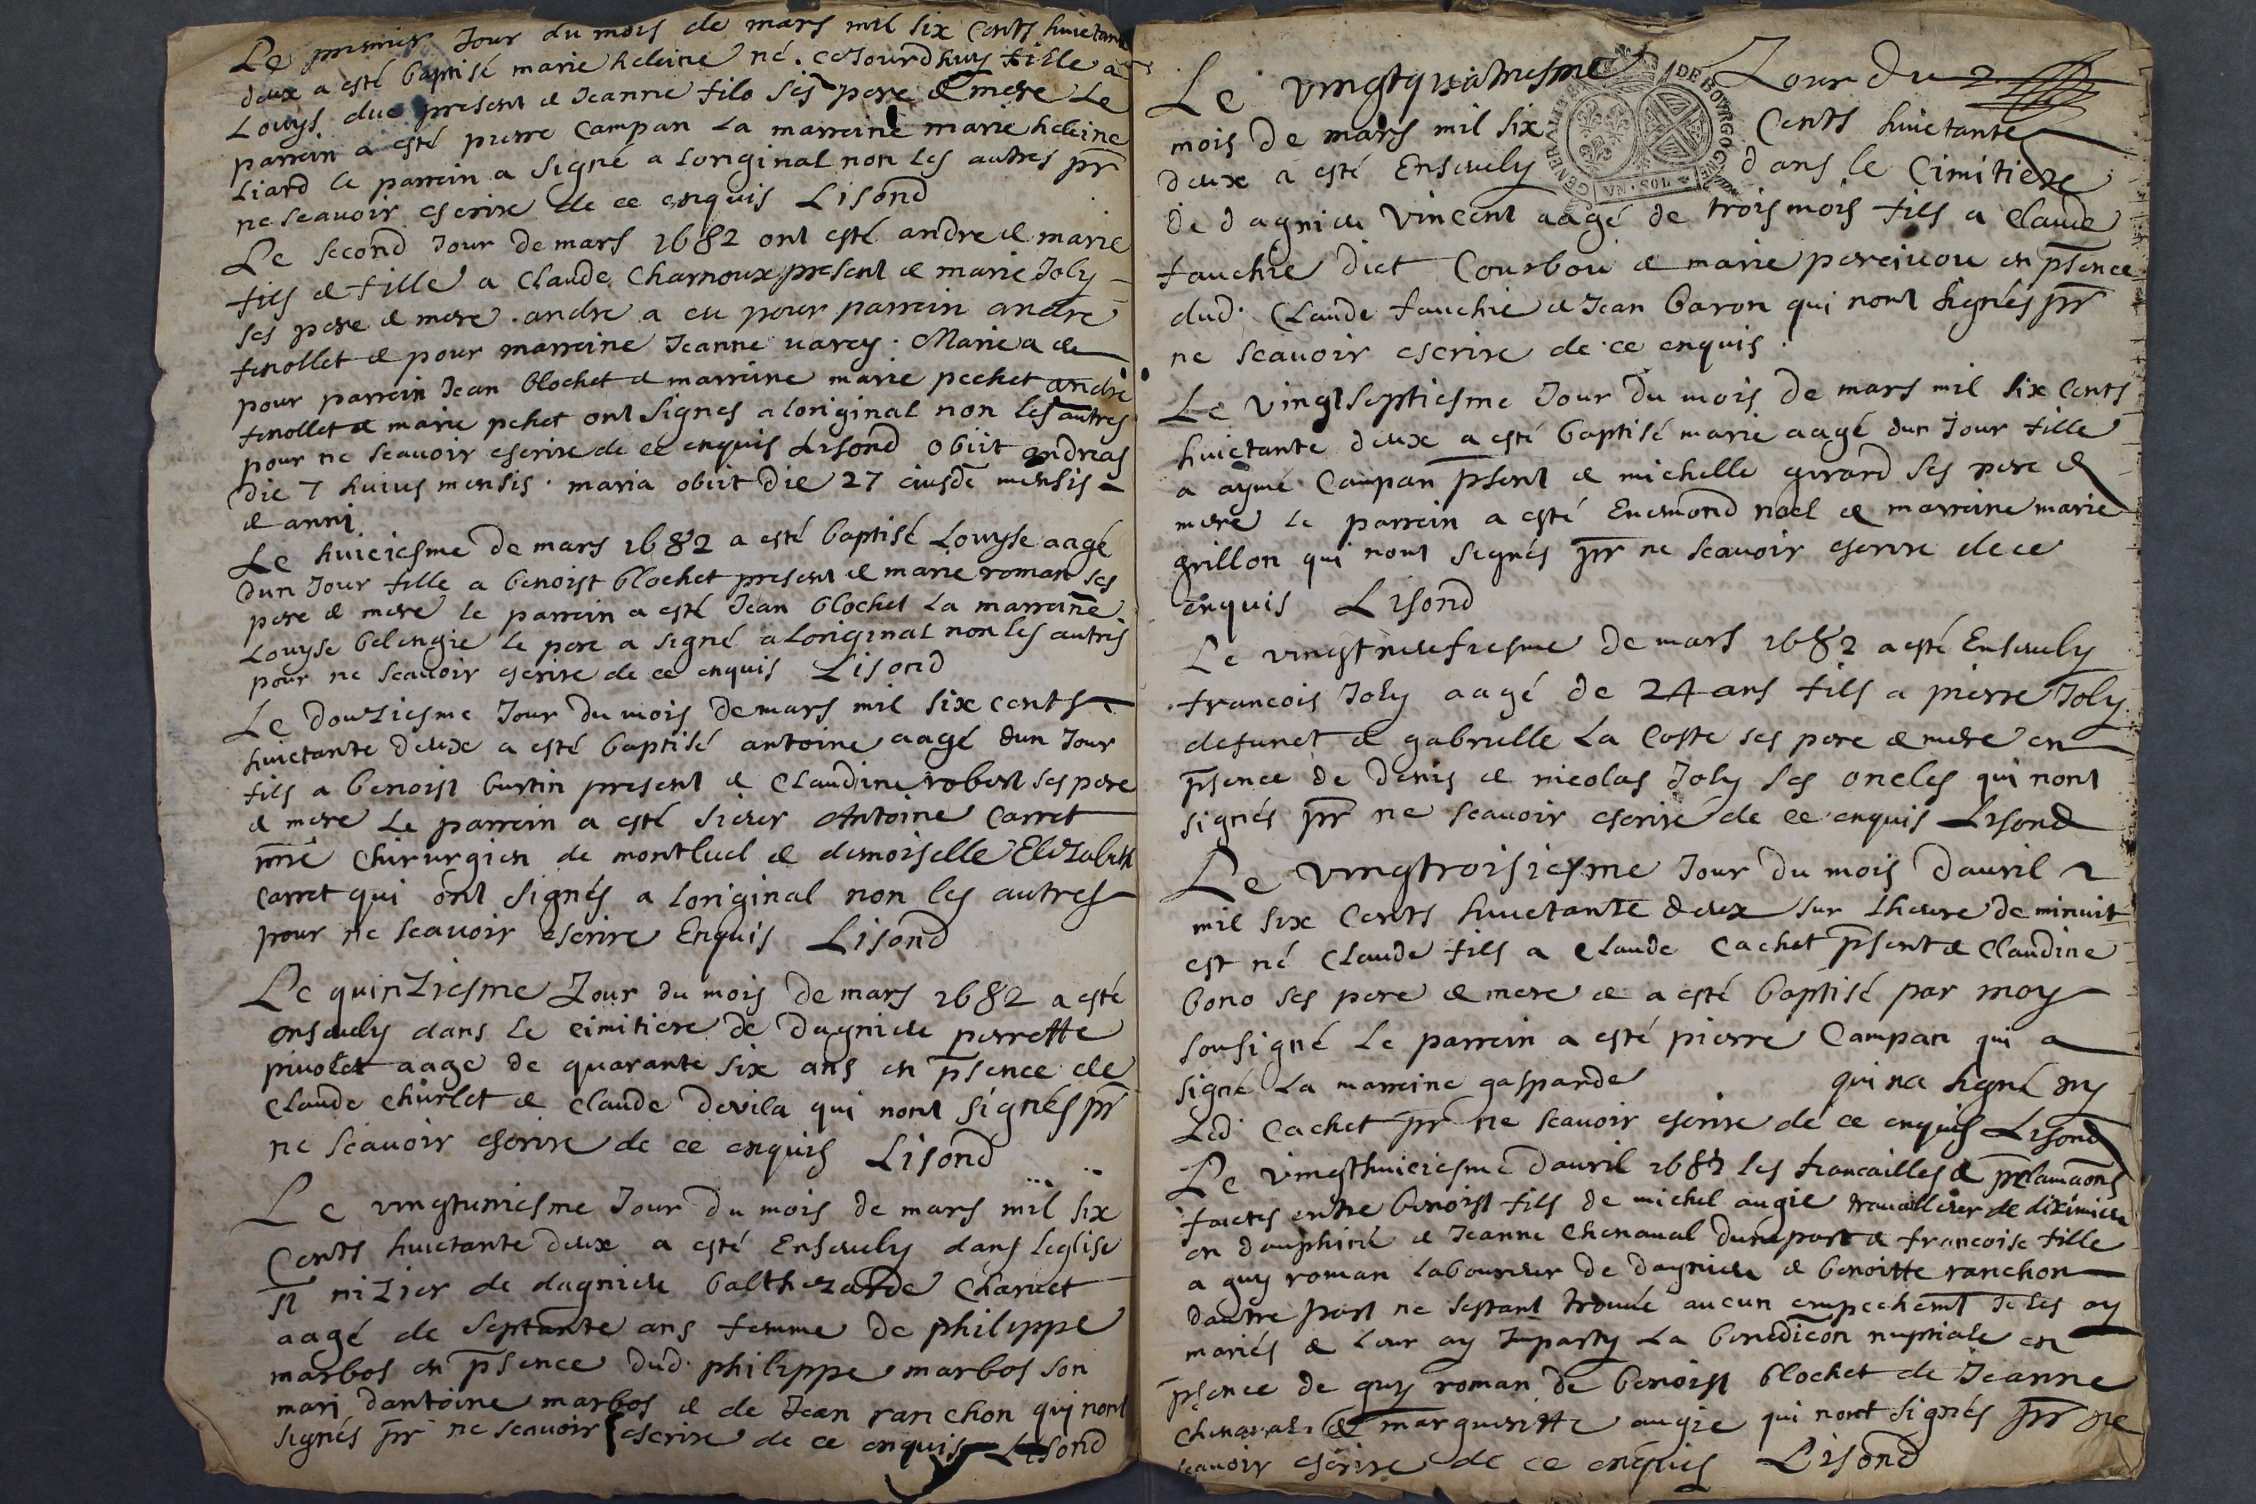 Le premier Jour du mois de mars mil six Cents huictante
deux a esté baptisé marie heleine né ceJourdhuy fille a
Louys duc present & Jeanne filo ses pere & mere Le
parrein a esté pierre Campan La marreine marie heleine
Liard le parrein a signé a loriginal non les autres pr
ne scauoir escrire de ce enquis Lisond
Le second Jour de mars 1682 ont esté andre & marie
fils & fille a Claude Charnoux present & marie Joly
ses pere & mere . andre a eu pour parrein andre
fenollet & pour marreine Jeanne uarey . Marie a eu
pour parrein Jean blochet & marreine marie pechet andre
fenollet & marie pehet ont signes a loriginal non les autres
pour ne scauoir escrire de ce enquis Lisond obiit andreas
die 7 huius mensis . maria obiit die 27 eiusde mensis
& anni
Le huiciesme de mars 1682 a esté baptisé Louyse aagé
dun Jour fille a benoist blochet present & marie roman ses
pere & mere le parrein a esté Jean blochet la marreine
Louyse belengie le pere a signé a loriginal non les autres
pour ne scauoir escrire de ce enquis Lisond
Le douziesme Jour du mois de mars mil six cents
huictante deux a esté baptisé antoine aagé dun Jour
fils a benoist burtin present & Claudine robert ses pere
& mere Le parrein a esté sieur Antoine Carret
mre Chirurgien de montluel & demoiselle Elizabeth
Carret qui ont signés a loriginal non les autres
pour ne scauoir escrire Enquis Lisond
Le quinziesme Jour du mois de mars 1682 a esté
enseuely dans le cimitiere de Dagnieu perrette
piuolet aage de quarante six ans en psence de
Claude Churlet & Claude Devila qui nont signés pr
ne scauoir escrire de ce enquis Lisond
Le vingtuniesme Jour du mois de mars mil six
Cents huictante deux a esté Enseuely dans leglise
st nizier de dagnieu balthezarde Charuet
aagé de septante ans femme de philippe
marbos en psence dud. philippe marbos son
mari dantoine marbos & de Jean ranchon qui nont
signés pr ne scauoir escrire de ce enquis Lisond
Le vingtquatriesme Jour du
mois de mars mil six Cents huictante
deux a esté Enseuely dans le Cimitiere
de dagnieu vincent aagé de trois mois fils a Claude
fauchie dict Courbou & marie perciuou en psence
dud. Claude fauchie & Jean baron qui nont signés pr
ne scauoir escrire de ce enquis .
Le vingtseptiesme Jour du mois de mars mil six Cents
huictante deux a esté baptisé marie aagé dun Jour fille
a aymé Campan psent & michelle girard ses pere &
mere le parrein a esté Enemond noel & marreine marie
grillon qui nont signés pr ne scauoir escrire de ce
enquis Lisond
Le vingtneufiesme de mars 1682 a esté Enseuely
francois Joly aagé de 24 ans fils a pierre Joly
defunct & gabrielle La Coste ses pere & mere en
psence de denis & nicolas Joly ses oncles qui nont
signés pr ne scauoir escrire de ce enquis Lisond
Le vingtroisiesme Jour du mois dauril
mil six Cents huictante deux sur Lheure de minuit
est né Claude fils a Claude Cachet psent & Claudine
bono ses pere & mere & a esté baptisé par moy
sousigné Le parrein a esté pierre Campan qui a
signé La marreine gasparde qui na signé ny
Led. Cachet pr ne scauoir escrire de ce enquis Lisond
Le vingthuiciesme dauril 1682 les fiancailles & prclamaons
faictes entre benoist fils de michel augie trauailleur de diximieu
en dauphiné & Jeanne Chenaual dune part & francoise fille
a guy roman laboureur de dagnieu & benoitte ranchon
dautre part ne sestant trouué aucun empechemt Je les ay
mariés & leur ay Imparty La benediction nuptiale en
psence de guy roman de benoist blochet de Jeanne
Chenaual & marguerite augie qui nont signés pr ne
scauoir escrire de ce enquis Lisond
GENERALITE DE BOVRGOGNE
VN · SOL